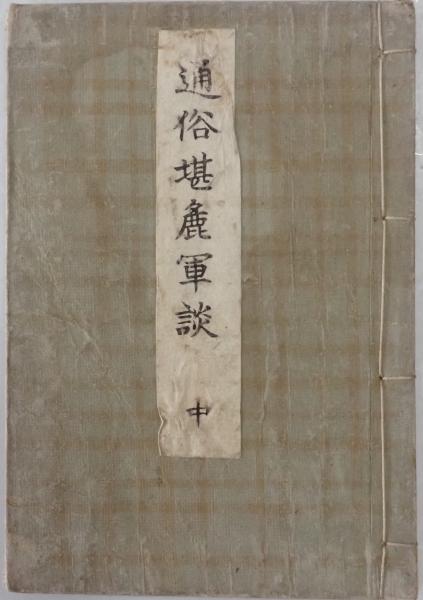 通俗堪麁軍談
中